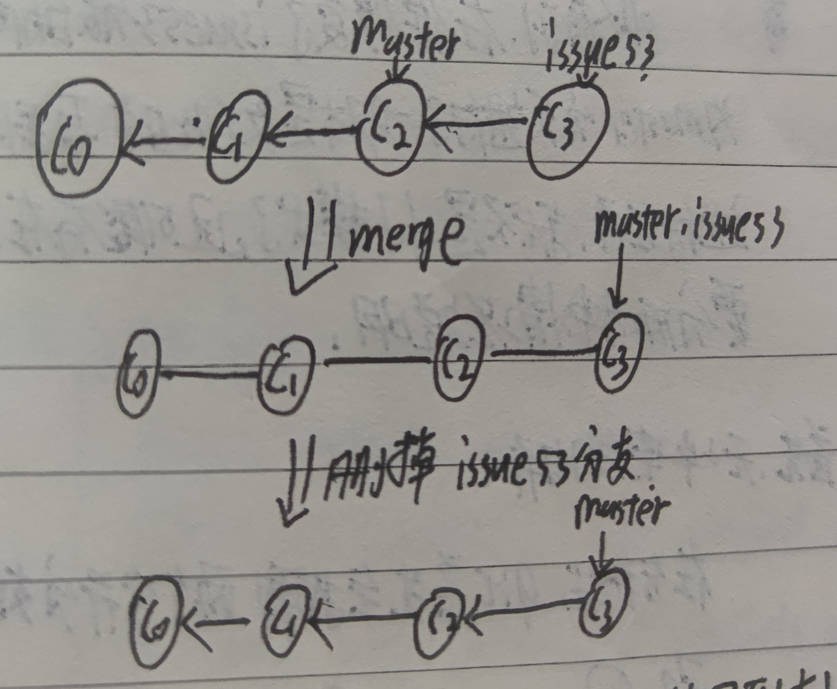 Master issue53
C0 C1 C2 C3
merge
master.issue53
C0 C1 C2 C3
删掉 issue53分支
master
C0 C1 C2 C3